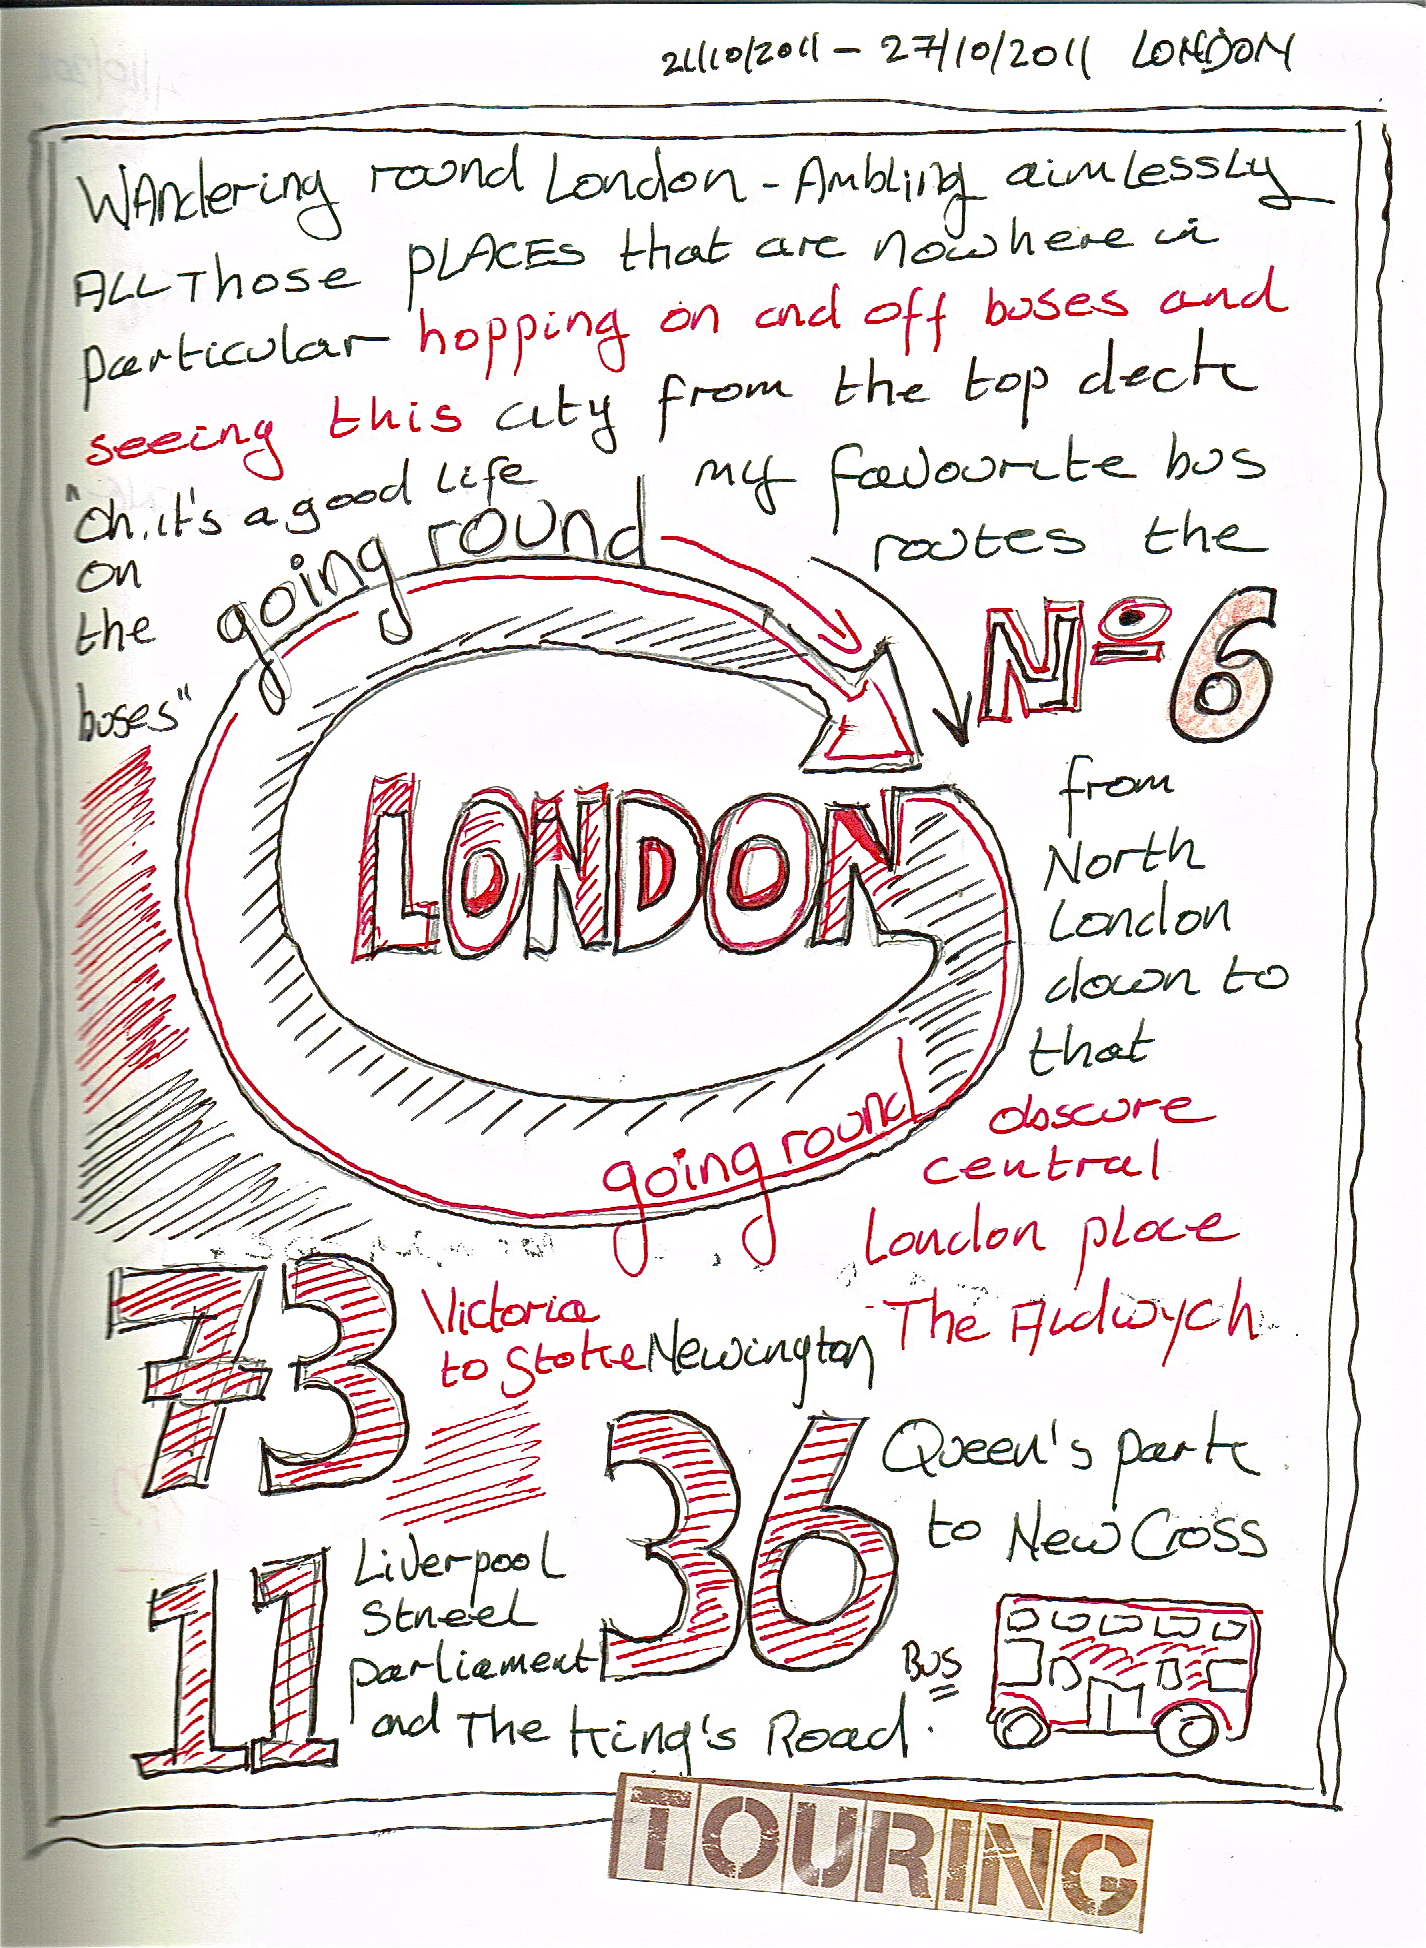 21/10/2011 – 27/10/2011 LONDON
Wandering round London - Ambling aimlessly
All Those PLACES that are nowhere in
particular hopping on and off buses and
seeing this city from the top deck
my favourite bus
routes the
Nº 6
from
North
London
down to
that
obscure
central
London place
The Aldwych
"Oh, it's a good life
on
the
buses"
going round
LONDON
going round
73
Victoria
to Stoke Newington
36
Queen's park
to New Cross
11
Liverpool
Street
parliament
and The King's Road.
BUS
TOURING